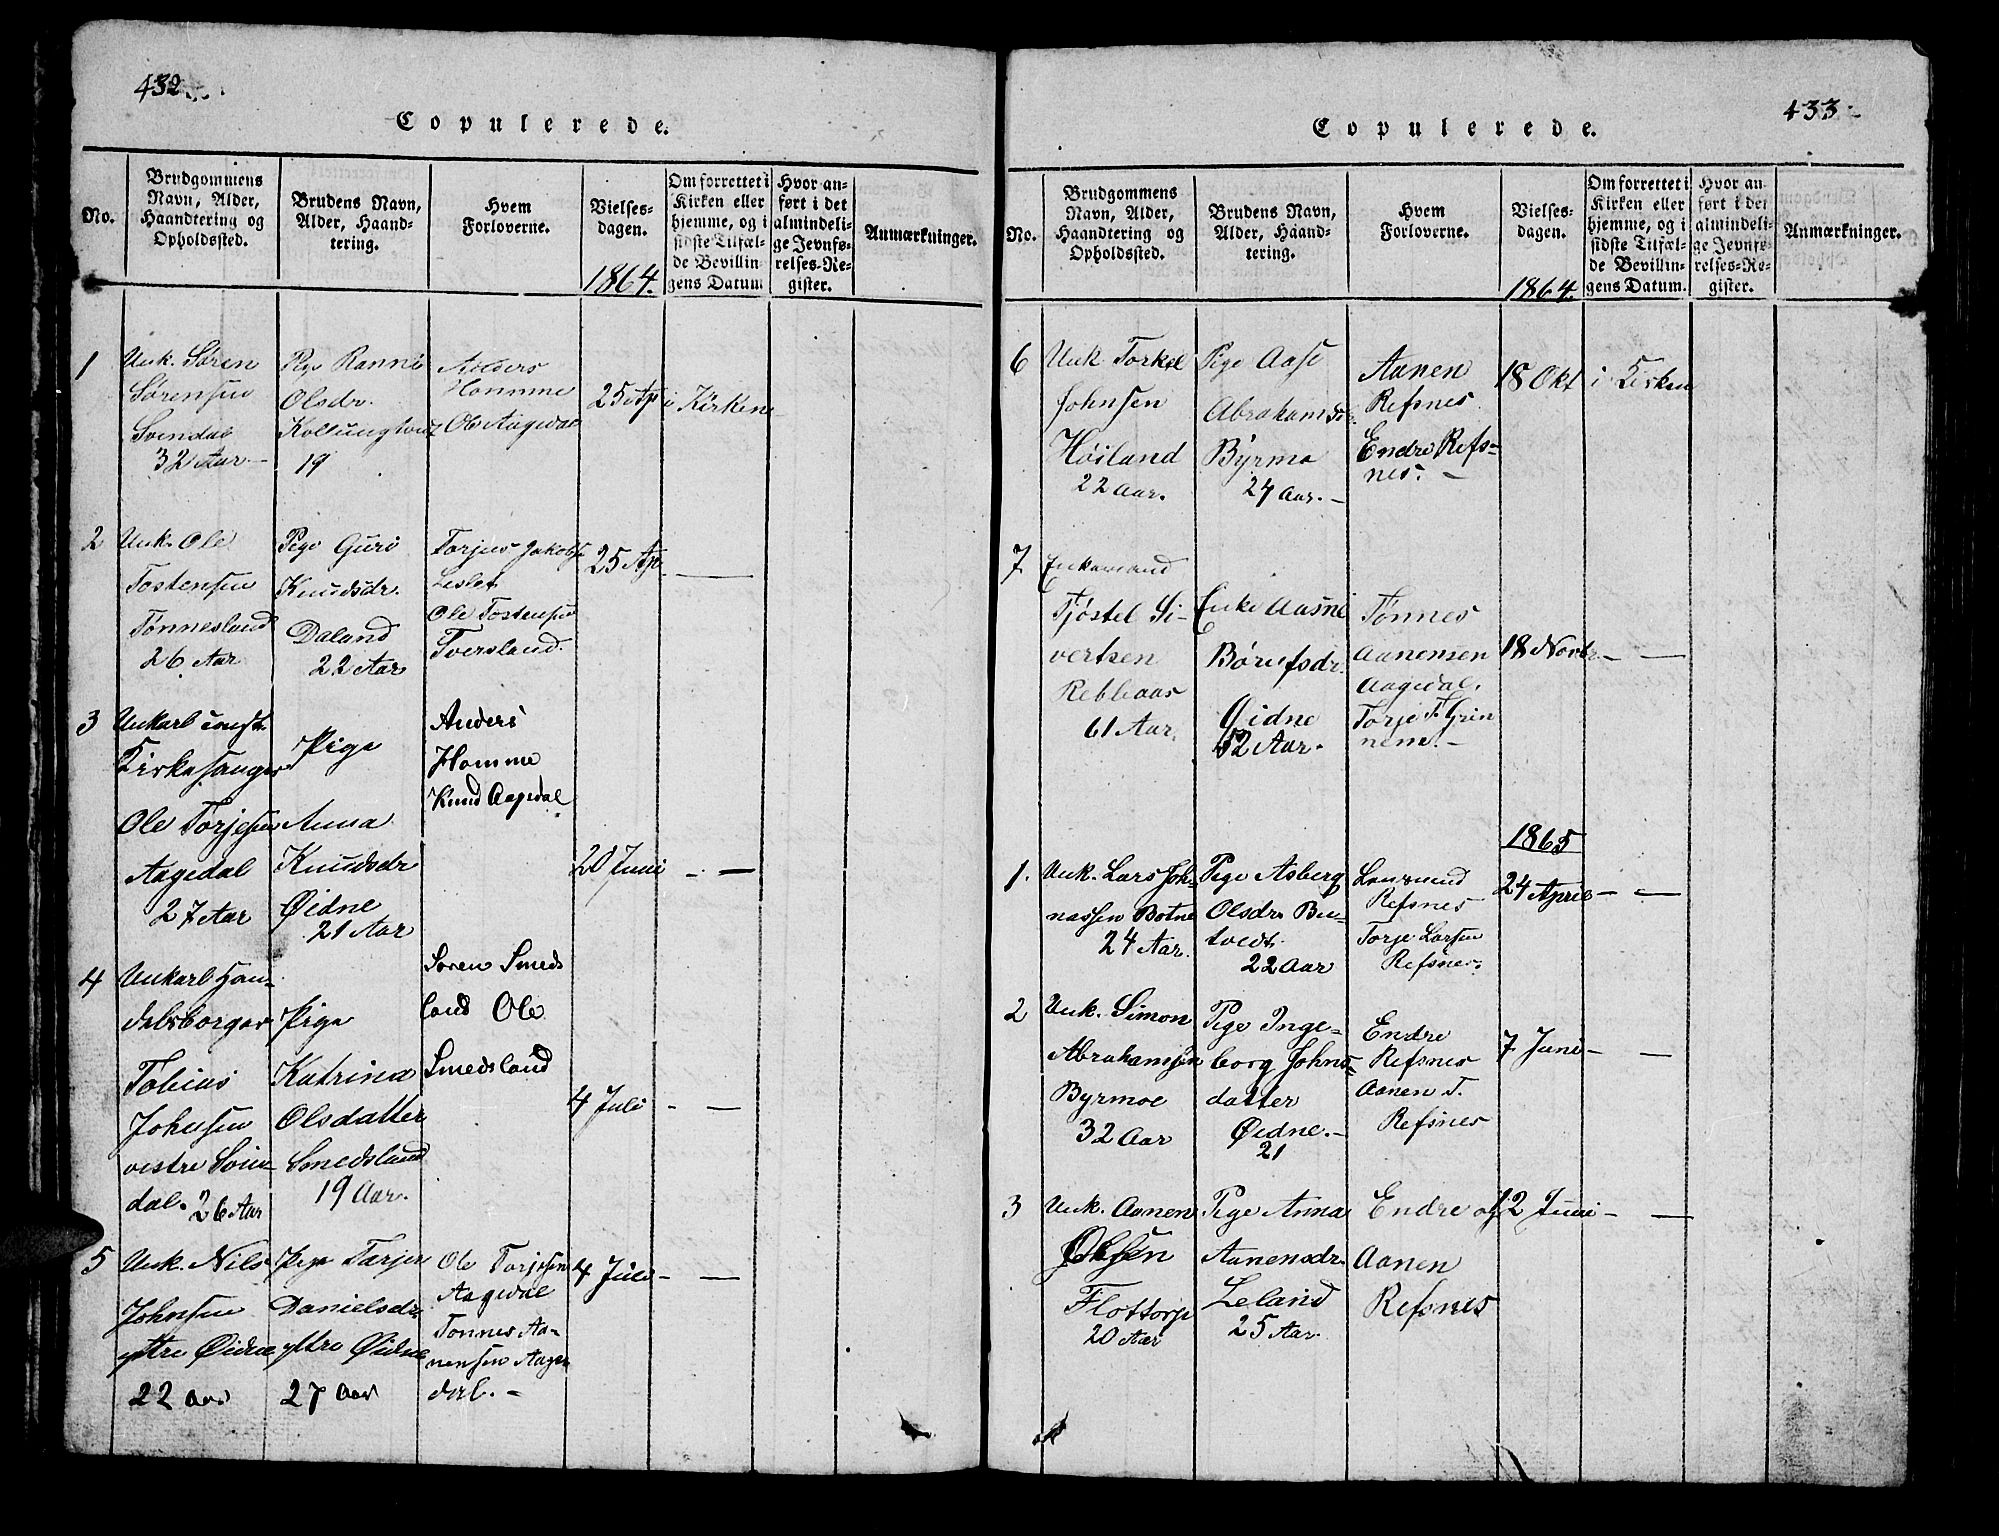 432
Copulerede.
No.
Brudgommens
Navn, Alder,
Haandtering og
Opholdssted.
Brudens Navn,
Alder, Haand-
tering.
Hvem
Forloverne.
Vielses-
dagen.
1864.
Om forrettet i
Kirken eller
hjemme, og i
sidste Tilfæl-
de Bevillin-
gens Datum
Hvor an-
ført i det
almindeli-
ge Jevnfø-
relses-Re-
gister.
Anmærkninger.
1
Unk. Søren
Sørensen
Svendal
32 Aar
Pige Ranni
Olsdr.
19
Homme
Ole Aagedal
25 Ap
i Kirken
2
Unk. Ole
Tostensen
Tønnesland
26 Aar
Pige Guri
Knudsdr.
Daland
22 Aar
Torjus Jakobs
Leslet
Ole Tostensen
Tversland.
25 Ap. —
3
Unkarl
Kirkesanger
Ole Torjesen
Aagedal
27 Aar
Pige
Anna
Knudsdr
Øidne
21 Aar
Anders
Homme
Knud Aagedal
20 Juni - —
4
Unkarl Han-
delsborger
Tobias
Johnsen
vestre
dal. 26 Aar
Pige
Katrina
Olsdatter
Smedsland
19 Aar.
Søren Smeds
land Ole
Smedsland
4 Juli - —
5
Unk. Nils
Johnsen
yttre Øidne
22 Aar
Pige Tarjer
Danielsdr
yttre Øidne
27 Aar
Ole Torjesen
Aagedal
Tønnes Aa-
nensen Aage
dal. -
4 Juli - —
433
Copulerede.
No.
Brudgommens
Navn, Alder,
Haandtering og
Opholdssted.
Brudens Navn,
Alder, Haand-
tering.
Hvem
Forloverne.
Vielses-
dagen.
1864.
Om forrettet i
Kirken eller
hjemme, og i
sidste Tilfæl-
de Bevillin-
gens Datum.
Hvor an-
ført i det
almindeli-
ge Jevnfø-
relses-Re-
gister.
Anmærkninger.
6
Unk Torkel
Johnsen
Høiland
22 Aar.
Pige Aase
Abrahamsd
Byrmo
24 Aar. -
Aanen
Refsnes
Endre Refs-
nes. -
18 Okt
i Kirken
7
Enkemand
Tjøstel Si-
vertsen
61 Aar.
Enke Aasne
Børufsdr
Øidne
52 Aar.
Tønnes
Aanensen
Aagedal.
Torje T. Grin
nem. -
18 Novbr - —
1865
1.
Unk. Lars Joh-
nassen Botne
24 Aar.
Pige Asberg
Olsdr. Bu-
tvedt.
22 Aar
Refsnes
Torje Larsen
Refsnes.
24 April - —
2
Unk. Simon
Abrahamsen
Byrmoe
32 Aar
Pige Inge-
borg Johns-
datter
Øidne. -
21
Endre
Refsnes
Aanen T.
Refsnes
7 Juni - —
3
Unk. Aanen
Olsen
Flottorp
20 Aar
Pige Anna
Aanensdr.
Leland
25 Aar.
Endre og
Aanen
Refsnes
12 Juni - —